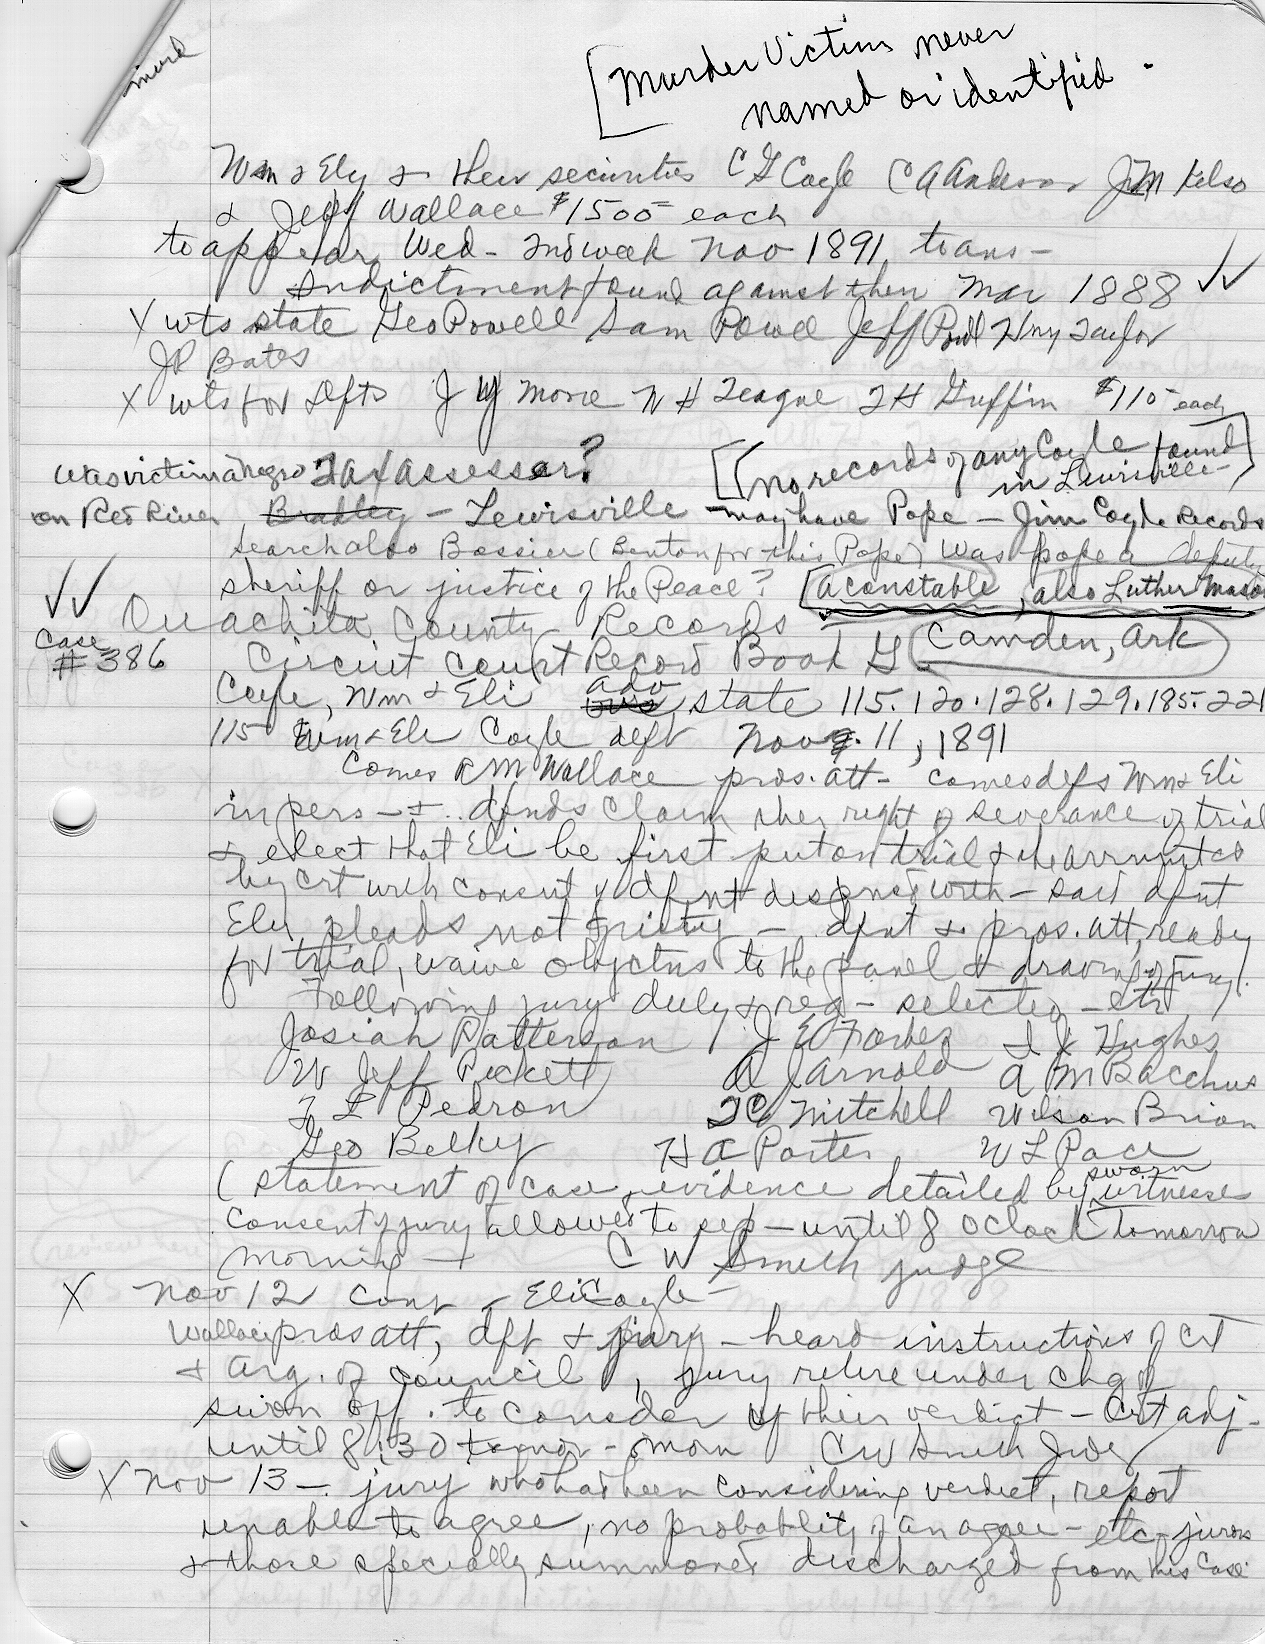 [Murder Victim never
named or identified.
Wm & Ely & their securities C G Cogle C A Anderson J M Kelso
& Jeff Wallace $1500 each
to appear Wed - 2nd week Nov 1891 to ans -
indictment found against them Mar 1888
X wts state Geo Powell Sam Powell Jeff Powell Hny Taylor
J R Bates
X wts for defts J W Moore N H Teague T H Griffin $110 each
was victim a negro Tax assessor? [(no records of any Cogle found
in Lewisville]
on Red River, Bradley - Lewisville - may have Pope - Jim Cogle Records
Search also Bossier (Benton for this Pope) Was Pope a deputy
sheriff or justice of the Peace? [a constable, also Luther Mason
Ouachita County Records
Case
#386 Circuit Court Record Book G Camden, Ark
Cogle, Wm & Eli adv state 115. 120. 128. 129. 185. 221
115 Wm & Eli Cogle deft Nov. 11, 1891
Comes R M Wallace pros. att - comes defs Wm & Eli
in pers - & dfnds claim their right of severance of trial
& elect that Eli be first put on trial &
by crt with consent of dfnt with - said dfnt
Eli pleads not guilty - dfnt & pros. att, ready
for trial, waive objctns to the panel & drawing of jury.
Following jury duly & reg - selected - etc
Josiah Patterson J E Forbes I J Hughes
W Jeff Pickett A J Arnold A M Bacchus
T L Pedron T C Mitchell Wilson Brian
Geo Belky H A Porter W L Pace
(statement of case, evidence detailed by sworn witnesse
consent of jury allowed to sep - until 8 oclock tomorrow
morning C W Smith judge
X Nov 12 Eli Cogle -
Wallace pros att, dft & jury - heard instructions of crt
& arg. of council, jury retire under chg of
sworn off. to consider of their verdict - Crt adj -
until 8:30 tomor - morn C W Smith Judg
X Nov 13 - jury who has been considering verdict, report
unable to agree, no probablity of an agree - etc jurors
& those specially summoned discharged from this case